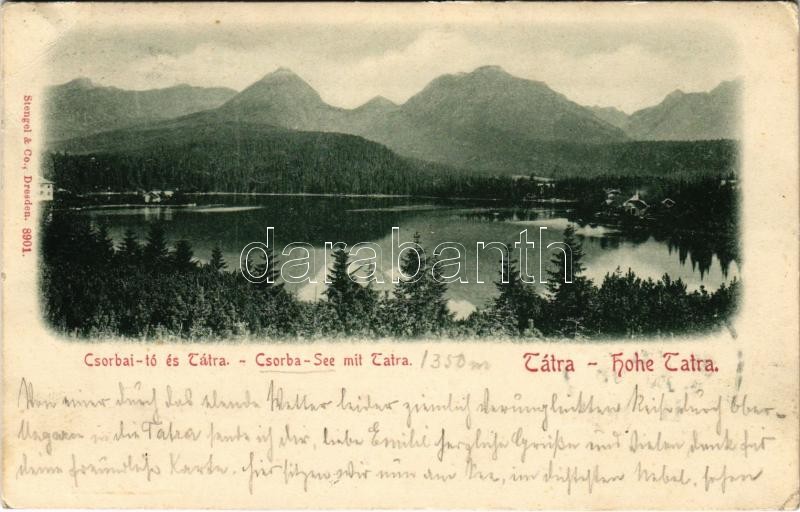 Stengel & Co., Dresden. 8901.
darabanth
Csorbai-tó és Tátra. - Csorba-See mit Tatra. 1350 m
Tátra - Hohe Tatra.
Von einer durch das elende Wetter leider ziemlich verunglückten Reise durch Ober-
Ungarn in die Tatra sende ich dir, liebe herzliche Grüße und vielen dank für
deine freundliche Karte. hier sitzen wir nun am See, im dichtesten Nebel, sehen